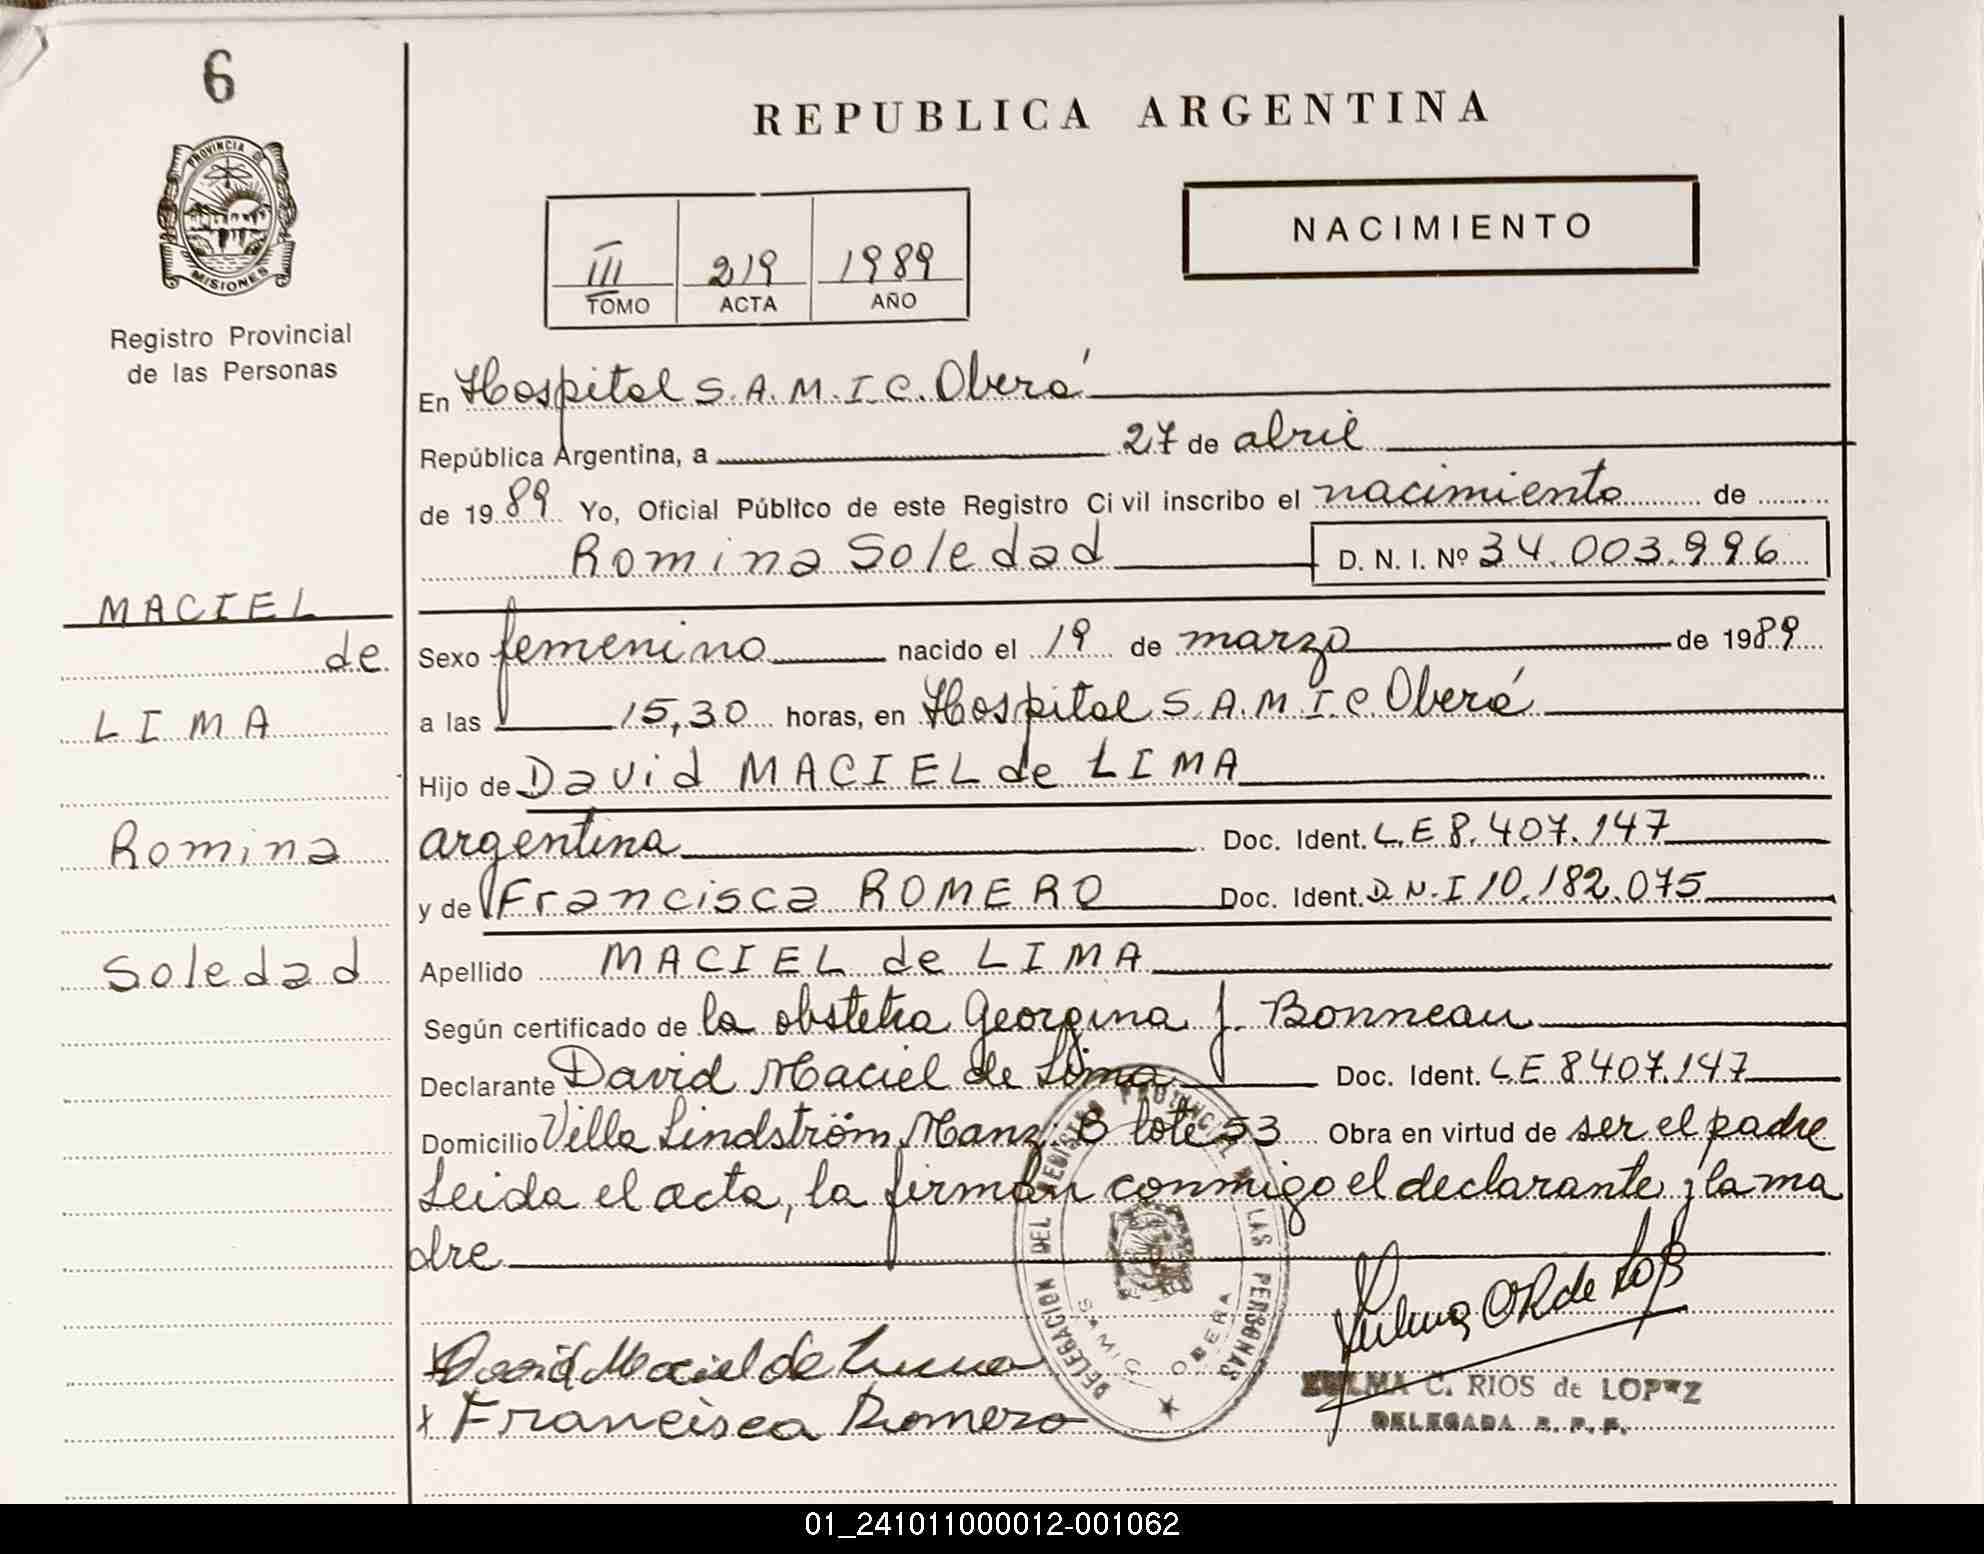 6
PROVINCIA DE
MISIONES
Registro Provincial
de las Personas
MACIEL
de
LIMA
Romina
Soledad
REPUBLICA ARGENTINA
NACIMIENTO
III 219 1989
TOMO ACTA AÑO
En Hospital S.A.M.I.C. Oberá
República Argentina, a 27 de abril
de 1989 Yo, Oficial Público de este Registro Civil inscribo el nacimiento de
Romina Soledad D. N. I. Nº 34.003.996
Sexo femenino nacido el 19 de marzo de 1989
a las 15,30 horas, en Hospital S.A.M.I.C. Oberá
Hijo de David MACIEL de LIMA
argentina Doc. Ident. L.E 8.407.147
y de Francisca ROMERO Doc. Ident. D.N.I 10.182.075
Apellido MACIEL de LIMA
Según certificado de la obstetra Georgina J. Bonneau
Declarante David Maciel de Lima Doc. Ident. L.E 8407.147
Domicilio Villa Lindström Manz. B lote 53 Obra en virtud de ser el padre
Leida el acta, la firman conmigo el declarante y la ma
dre
DELEGACION DEL REGISTRO PROVINCIAL DE LAS PERSONAS
SAMIC OBERA
David Maciel de Lima
Francisca Romero
ZULMA C. RIOS de LOPEZ
DELEGADA R. P. P.
01_241011000012-001062